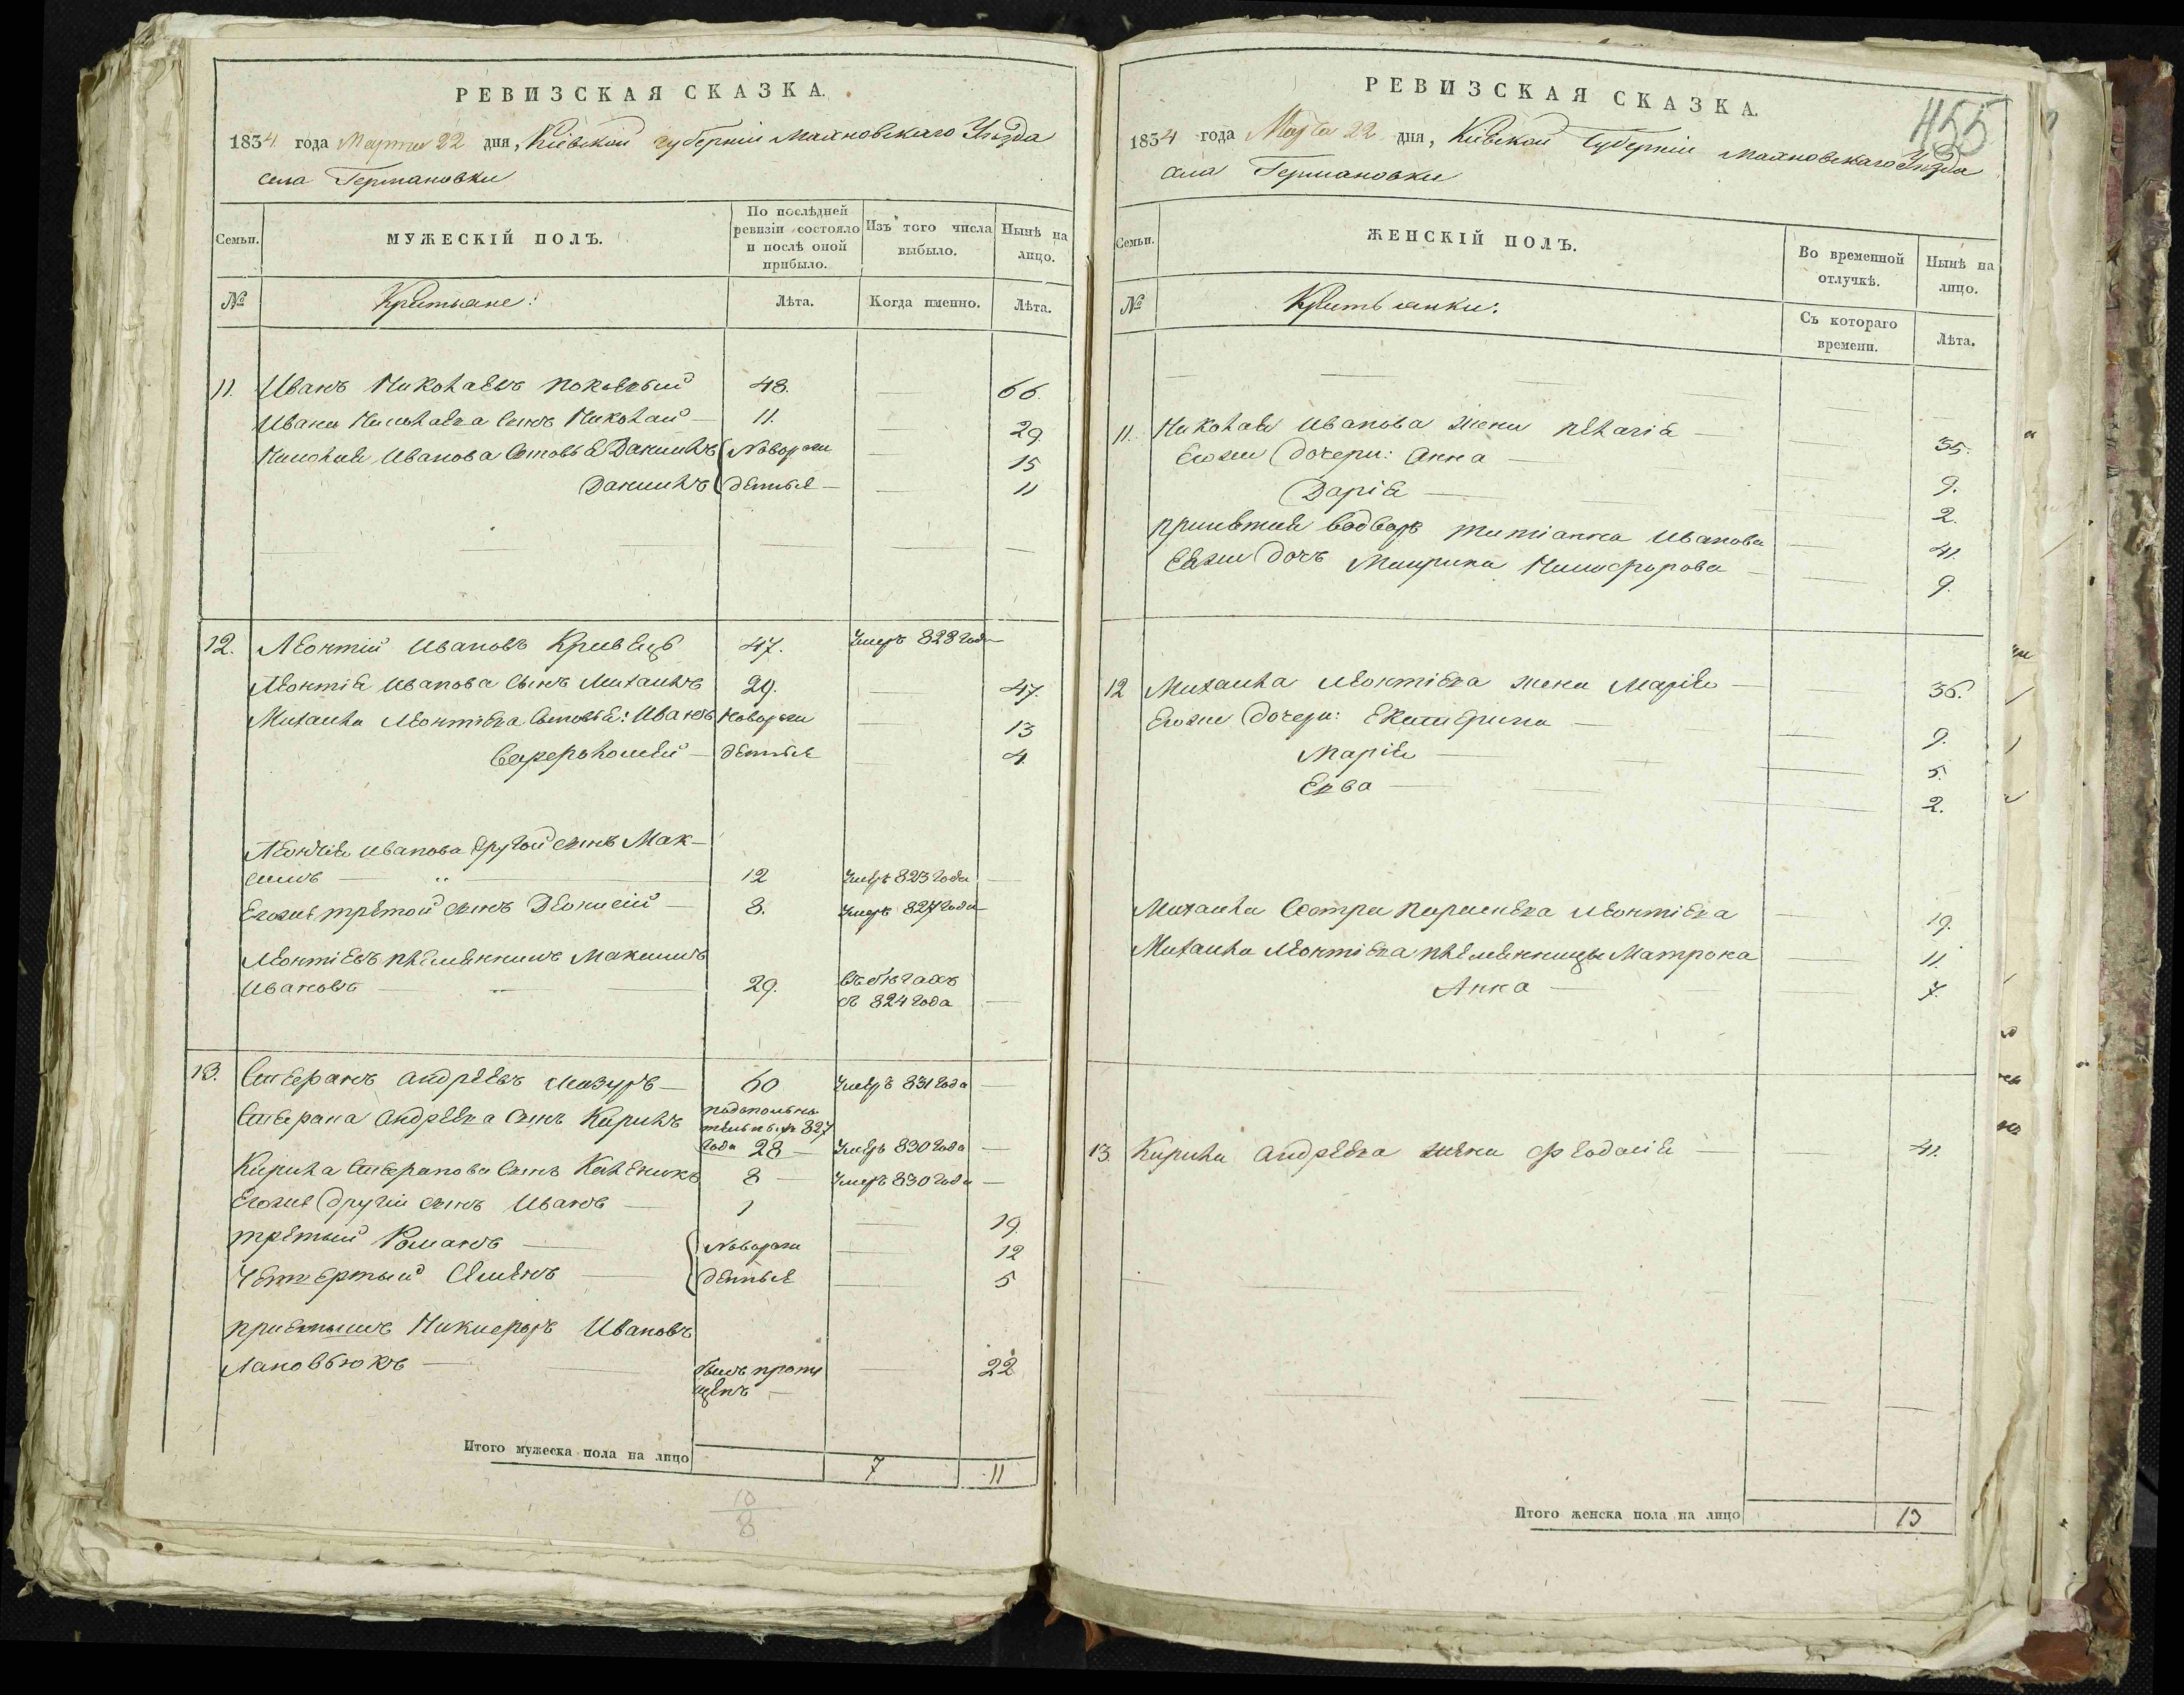 РЕВИЗСКАЯ СКАЗКА.
1834 года Марта 22 дня, Кіевской губерніи Махновскаго Уѣзда
села Германовки
Семьи.
МУЖЕСКІЙ ПОЛЪ.
По послѣдней ревизіи состояло и послѣ оной прибыло.
Изъ того числа выбыло.
Нынѣ на лицо.
№
Крестьяне:
Лѣта.
Когда именно.
Лѣта.
11. Иванъ Николаевъ 48. 66.
Ивана Николаева сынъ Николай 11. 29.
Николая Иванова сыновья Даниилъ Новорож 15
Даниилъ денные 11
12. Леонтій Ивановъ Кривецъ 47. Умеръ 828 года
Леонтія Иванова сынъ Михаилъ 29. 47.
Михаила Леонтіева сыновья: Иванъ Новорож 13
денные 4.
Леонтія Иванова другой сынъ Мак-
симъ 12 Умеръ 823 года
Егоже третой сынъ Деонисій 8. Умеръ 827 года
Леонтіевъ племянникъ Максимъ
Ивановъ 29. Въ бѣгахъ
съ 824 года
13. Стефанъ Андреевъ Мазуръ 60 Умеръ 831 года
Стефана Андреева сынъ Кирилъ
827
года 28 Умеръ 830 года
Кирила Стефанова сынъ 8 Умеръ 830 года
Егоже другій сынъ Иванъ 1 19.
третый Романъ Новорож 12
Четвертый Семенъ денные 5
пріемышъ Никифоръ Ивановъ
быль пропу 22
щенъ
Итого мужеска пола на лицо 7 11
10
8
РЕВИЗСКАЯ СКАЗКА.
455
1834 года Марта 22 дня, Кіевской Губерніи Махновскаго Уѣзда
села Германовки
Семьи.
ЖЕНСКІЙ ПОЛЪ.
Во временной отлучкѣ.
Нынѣ на лицо.
№
Крестьянки:
Съ котораго времени.
Лѣта.
11. Николая Иванова жена Пелагія 35.
Егоже дочери: Анна 9.
Дарія 2.
Иванова 41.
Еяже дочь Марина Никифорова 9.
12 Михаила Леонтіева жена Марія 36.
Егоже дочери: Екатерина 9.
Марія 5.
Евва 2.
Михаила сестра Параскева Леонтіева 19.
Михаила Леонтіева племянницы Матрона 11.
Анна 7.
13. Кирила Андреева жена Феодосія 41.
Итого женска пола на лицо 13